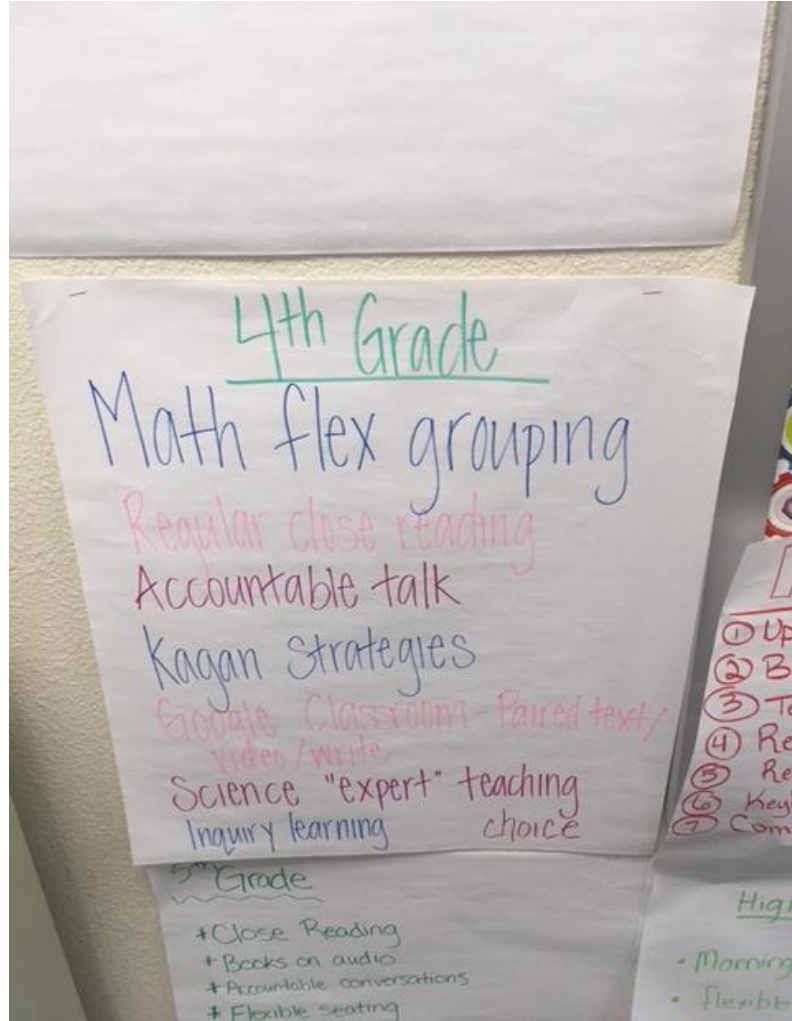 4th Grade
Math flex grouping
Regular close reading
Accountable talk
Kagan Strategies
Google Classroom - Paired text/
video/write
Science "expert" teaching
Inquiry learning choice
5th Grade
* Close Reading
* Books on audio
* Accountable conversations
* Flexible seating
① Up
② B
③ Te
④ Re
⑤ Re
⑥ Key
⑦ Com
High
• Morning
• flexible